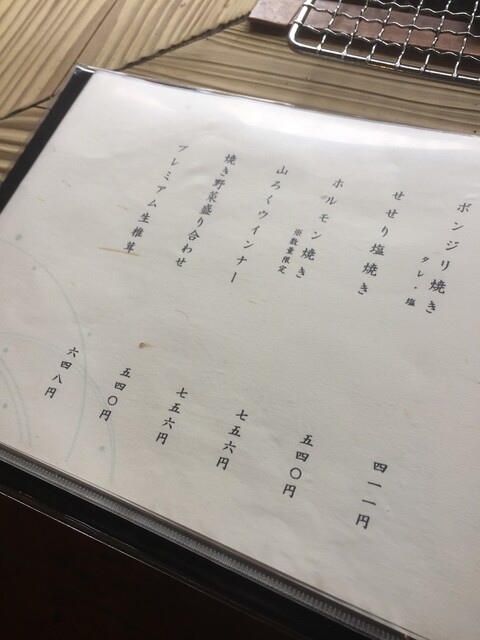 ボンジリ焼き タレ・塩 四一一円
せせり塩焼き 五四〇円
ホルモン焼き ※数量限定 七五六円
山ろくウインナー 七五六円
焼き野菜盛り合わせ 五四〇円
プレミアム生椎茸 六四八円